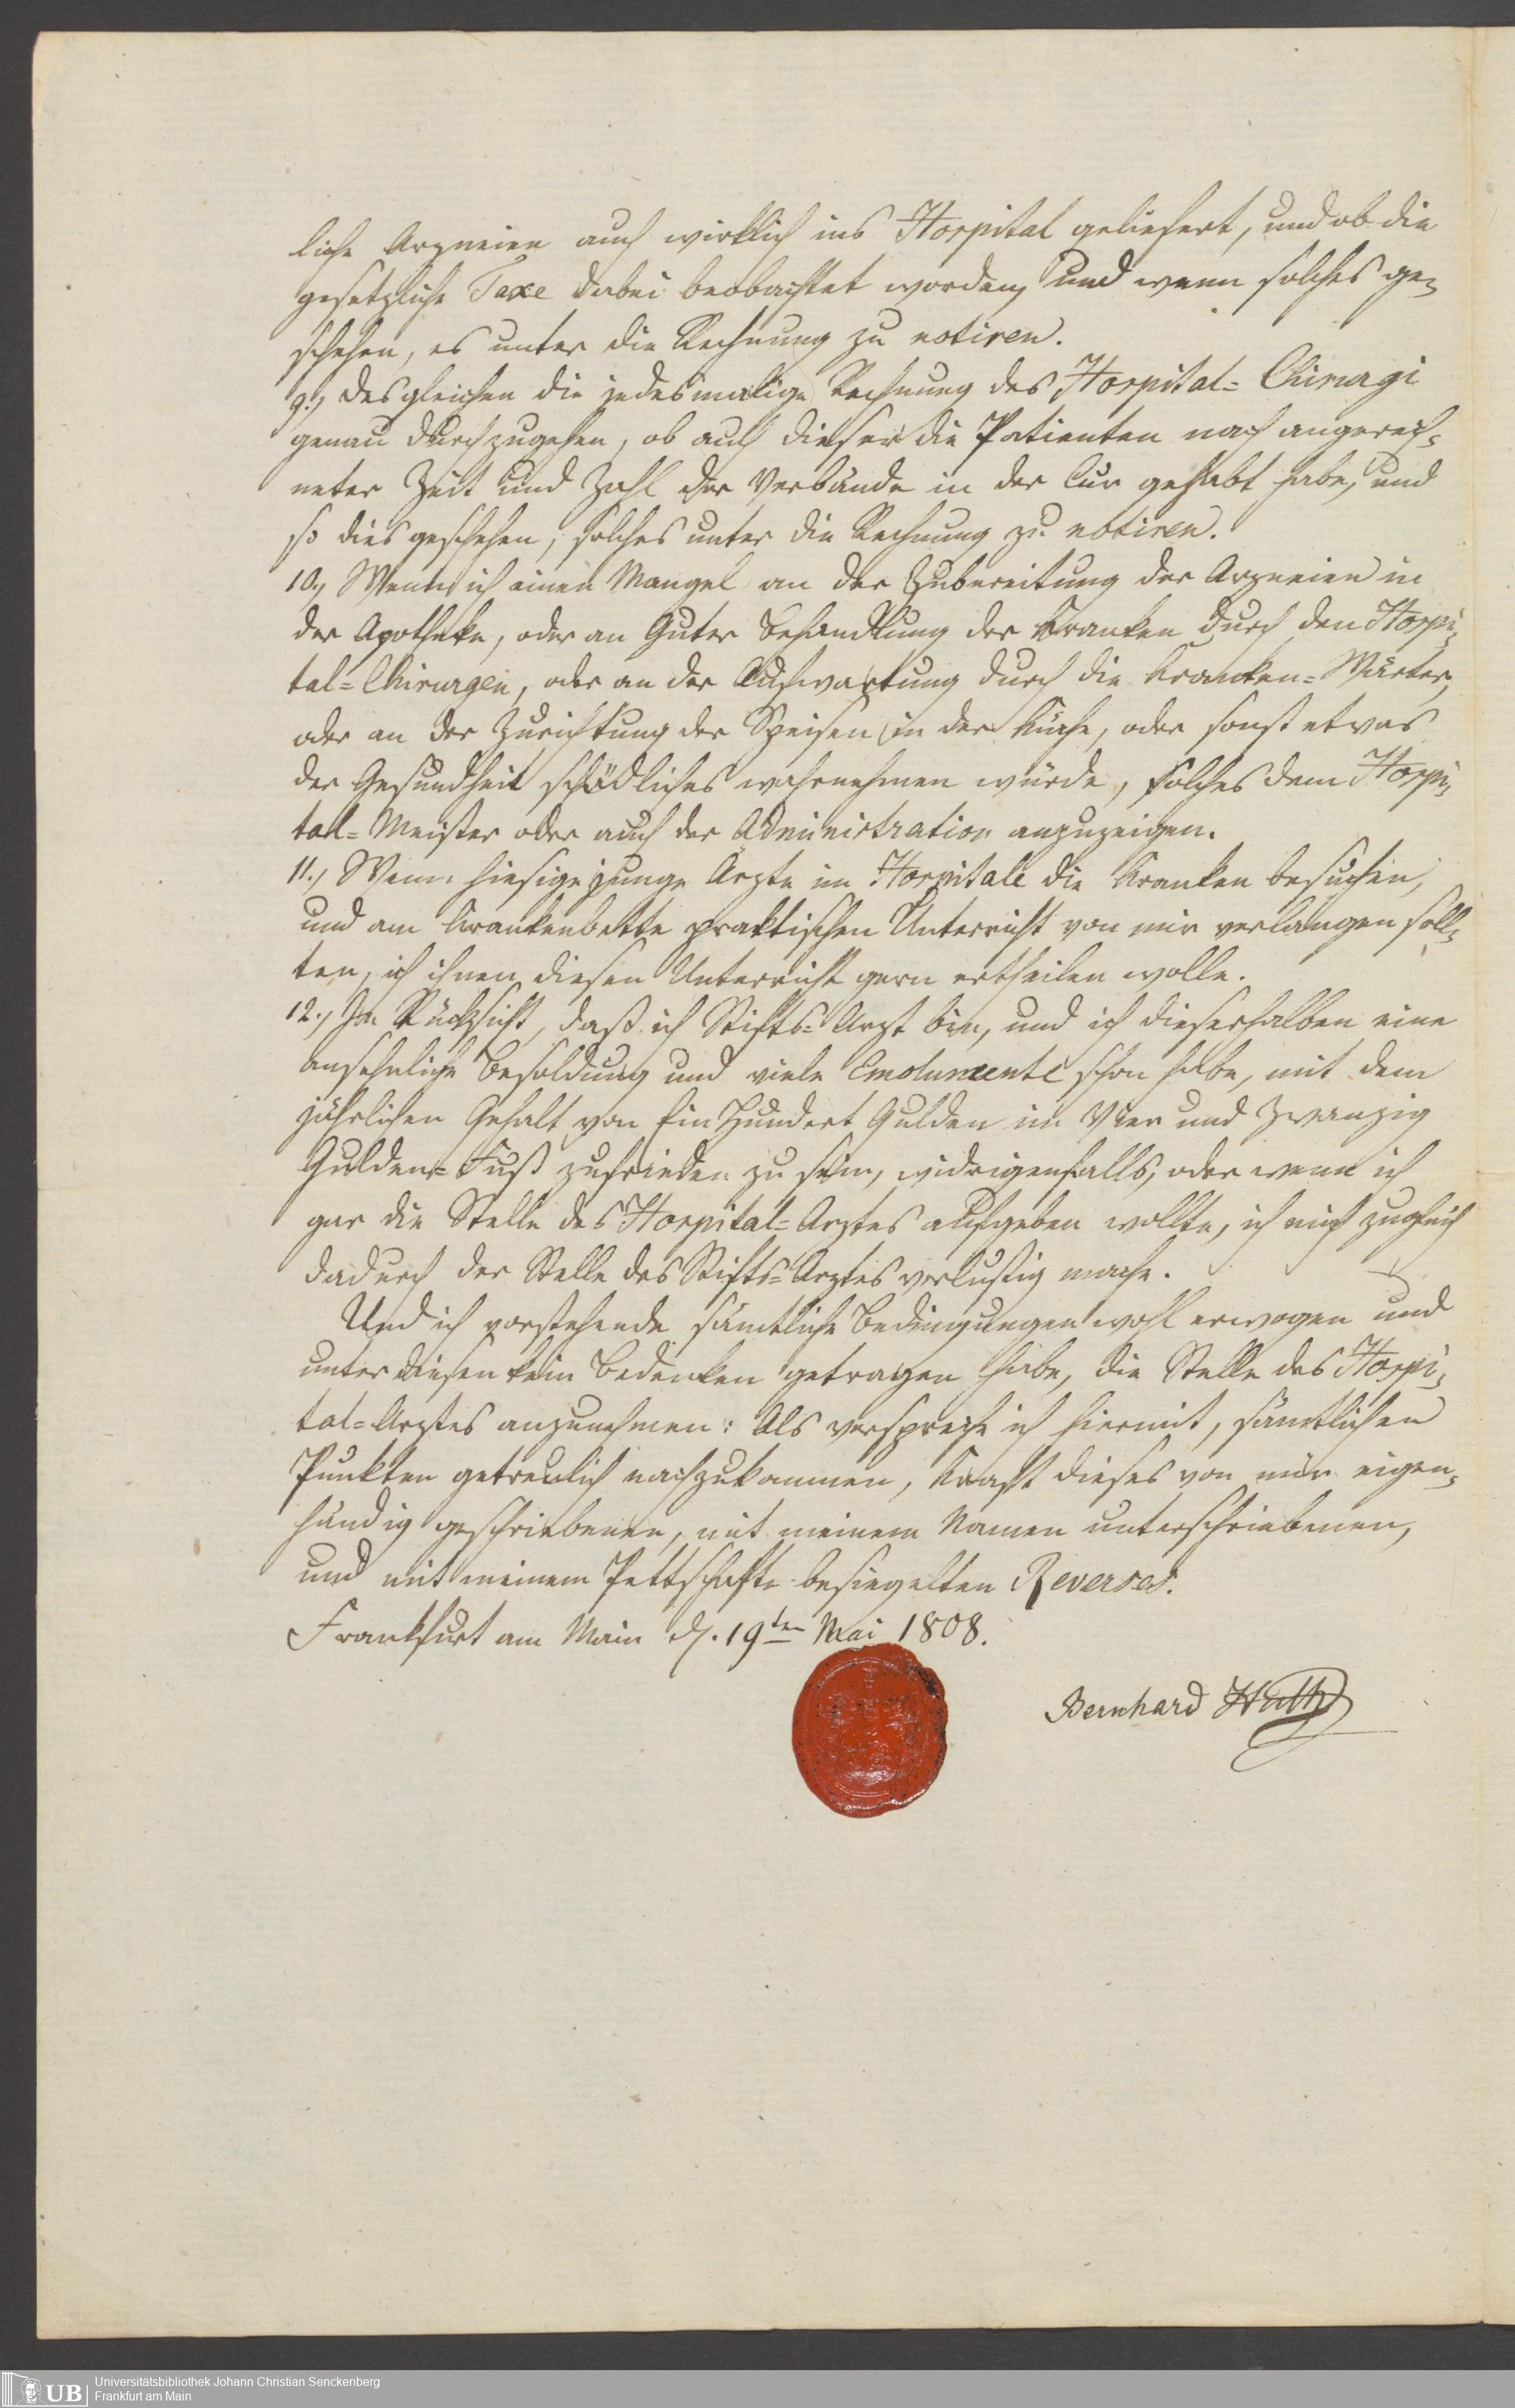 liche Arzneien auch wirklich ins Hospital geliefert, und ob die
gesetzliche Taxe dabei beobachtet worden, und wenn solches ge-
schehen, es unter die Rechnung zu notiren.
9.) Desgleichen die jedesmalige Rechnung des Hospital-Chirurgi
genau durchzugehen, ob auch dieser die Patienten nach angerech-
neter Zeit und Zahl der Verbände in der Cur gehabt habe, und
so dies geschehen, solches unter die Rechnung zu notiren.
10.) Wenn ich einen Mangel an der Zubereitung der Arzneien in
der Apotheke, oder an Guter Behandlung der Kranken durch den Hospi-
tal-Chirurgen, oder an der Aufwartung durch die Kranken-Wärter,
oder an der Zurichtung der Speisen in der Küche, oder sonst etwas
der Gesundheit schädliches wahrnehmen würde, solches dem Hospi-
tal-Meister oder auch der Administration anzuzeigen.
11.) Wenn hiesige junge Ärzte im Hospitale die Kranken besuchen,
und am Krankenbette praktischen Unterricht von mir verlangen soll-
ten, ich ihnen diesen Unterricht gern ertheilen wolle.
12.) In Rücksicht, daß ich Stifts-Arzt bin, und ich dieserhalben eine
ansehnliche Besoldung und viele Emolumente schon habe, mit dem
jährlichen Gehalt von Ein Hundert Gulden im Vier und Zwanzig
Gulden-Fuß zufrieden zu sein, widrigenfalls, oder wenn ich
gar die Stelle des Hospital-Arztes aufgeben wollte, ich mich zugleich
dadurch der Stelle des Stifts-Arztes verlustig mache.
Und ich vorstehende sämtliche Bedingungen wohl erwogen und
unter diesen kein Bedenken getragen habe, die Stelle des Hospi-
tal-Arztes anzunehmen: Als verspreche ich hiermit, sämtlichen
Punkten getreulich nachzukommen, Kraft dieses von mir eigen-
händig geschriebenen, mit meinem Namen unterschriebenen,
und mit meinem Pettschafte besiegelten Reverses.
Frankfurt am Main d. 19ten Mai 1808.
Bernhard Huth
UB Universitätsbibliothek Johann Christian Senckenberg
Frankfurt am Main